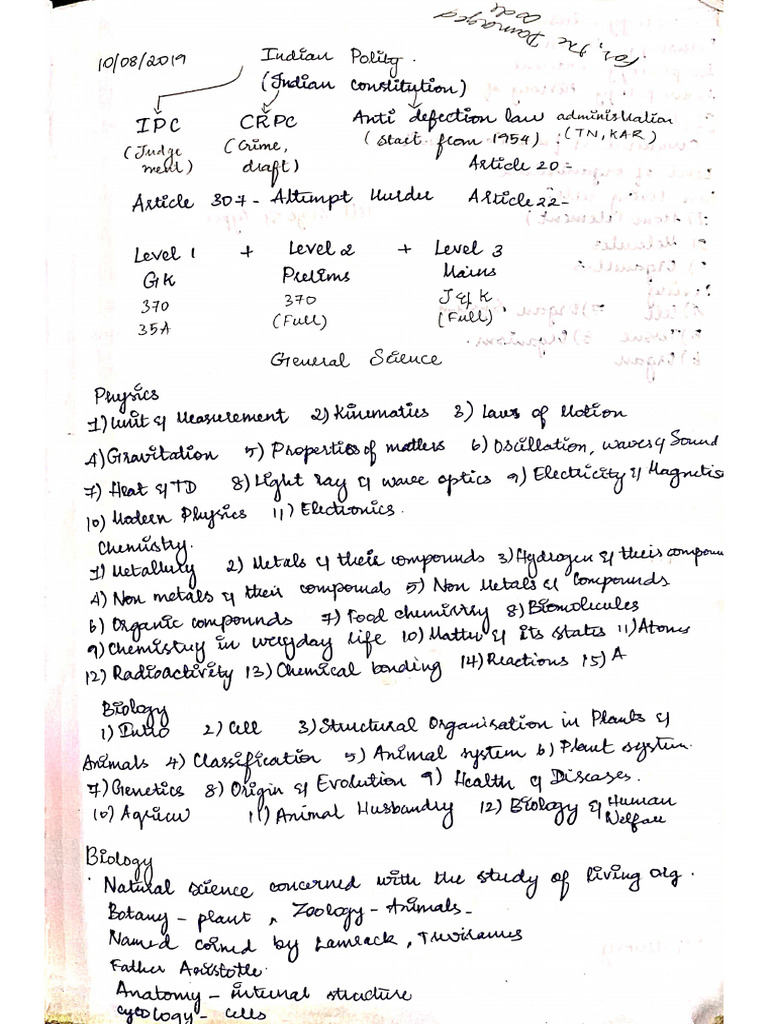 For, the Damaged
code
10/08/2019 Indian Polity.
(Indian constitution)
IPC CRPC Anti defection law administration
(Judge (Crime, (start from 1954) (TN, KAR)
ment) draft) Article 20-
Article 307 - Attempt Murder Article 22-
Level 1 + Level 2 + Level 3
GK Prelims Mains
370 370 J & K
35A (Full) (Full)
General Science
Physics
1) Unit & Measurement 2) Kinematics 3) Laws of Motion
4) Gravitation 5) Properties of matters 6) Oscillation, waves & Sound
7) Heat & TD 8) Light Ray & wave optics 9) Electricity & Magnetis
10) Modern Physics 11) Electronics.
Chemistry.
1) Metallury 2) Metals & their compounds 3) Hydrogen & their compoun
4) Non metals & their compounds 5) Non Metals & Compounds
6) Organic compounds 7) Food chemistry 8) Biomolicules
9) Chemistry in everyday life 10) Matter & its states 11) Atoms
12) Radioactivity 13) Chemical bonding 14) Reactions 15) A
Biology
1) Intro 2) Cell 3) Structural Organisation in Plants &
Animals 4) Classification 5) Animal system 6) Plant system.
7) Genetics 8) Origin & Evolution 9) Health & Diseases.
10) Agricu 11) Animal Husbandry 12) Biology & Human
Welfare
Biology
Natural science concerned with the study of living org.
Botany - plant, Zoology - Animals-
Named coined by Lamrack, Treviranus
Father Aristotle.
Anatomy - internal structure
cytology - cells